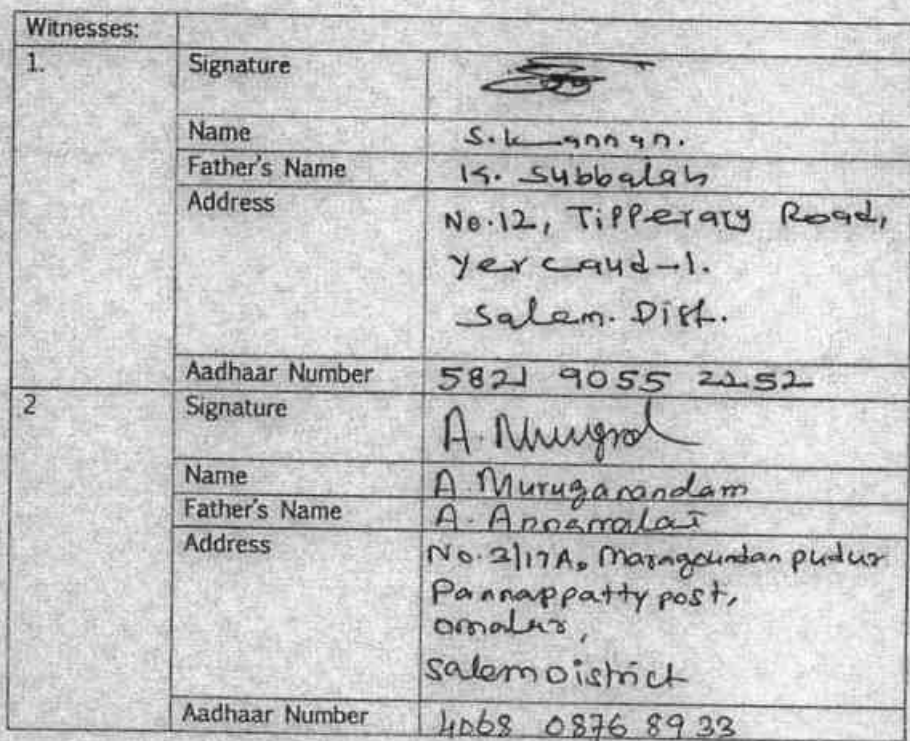 Witnesses:
1. Signature
Name S. Kannan.
Father's Name K. Subbaiah
Address No.12, Tipperary Road,
Yercaud-1.
Salem. Dist.
Aadhaar Number 5821 9055 2252
2 Signature A. Murugand
Name A. Muruganandam
Father's Name A. Annamalai
Address No. 2/17A, Maramgoundan pudur
Pannappatty post,
omalur,
Salem District
Aadhaar Number 4068 0876 8933